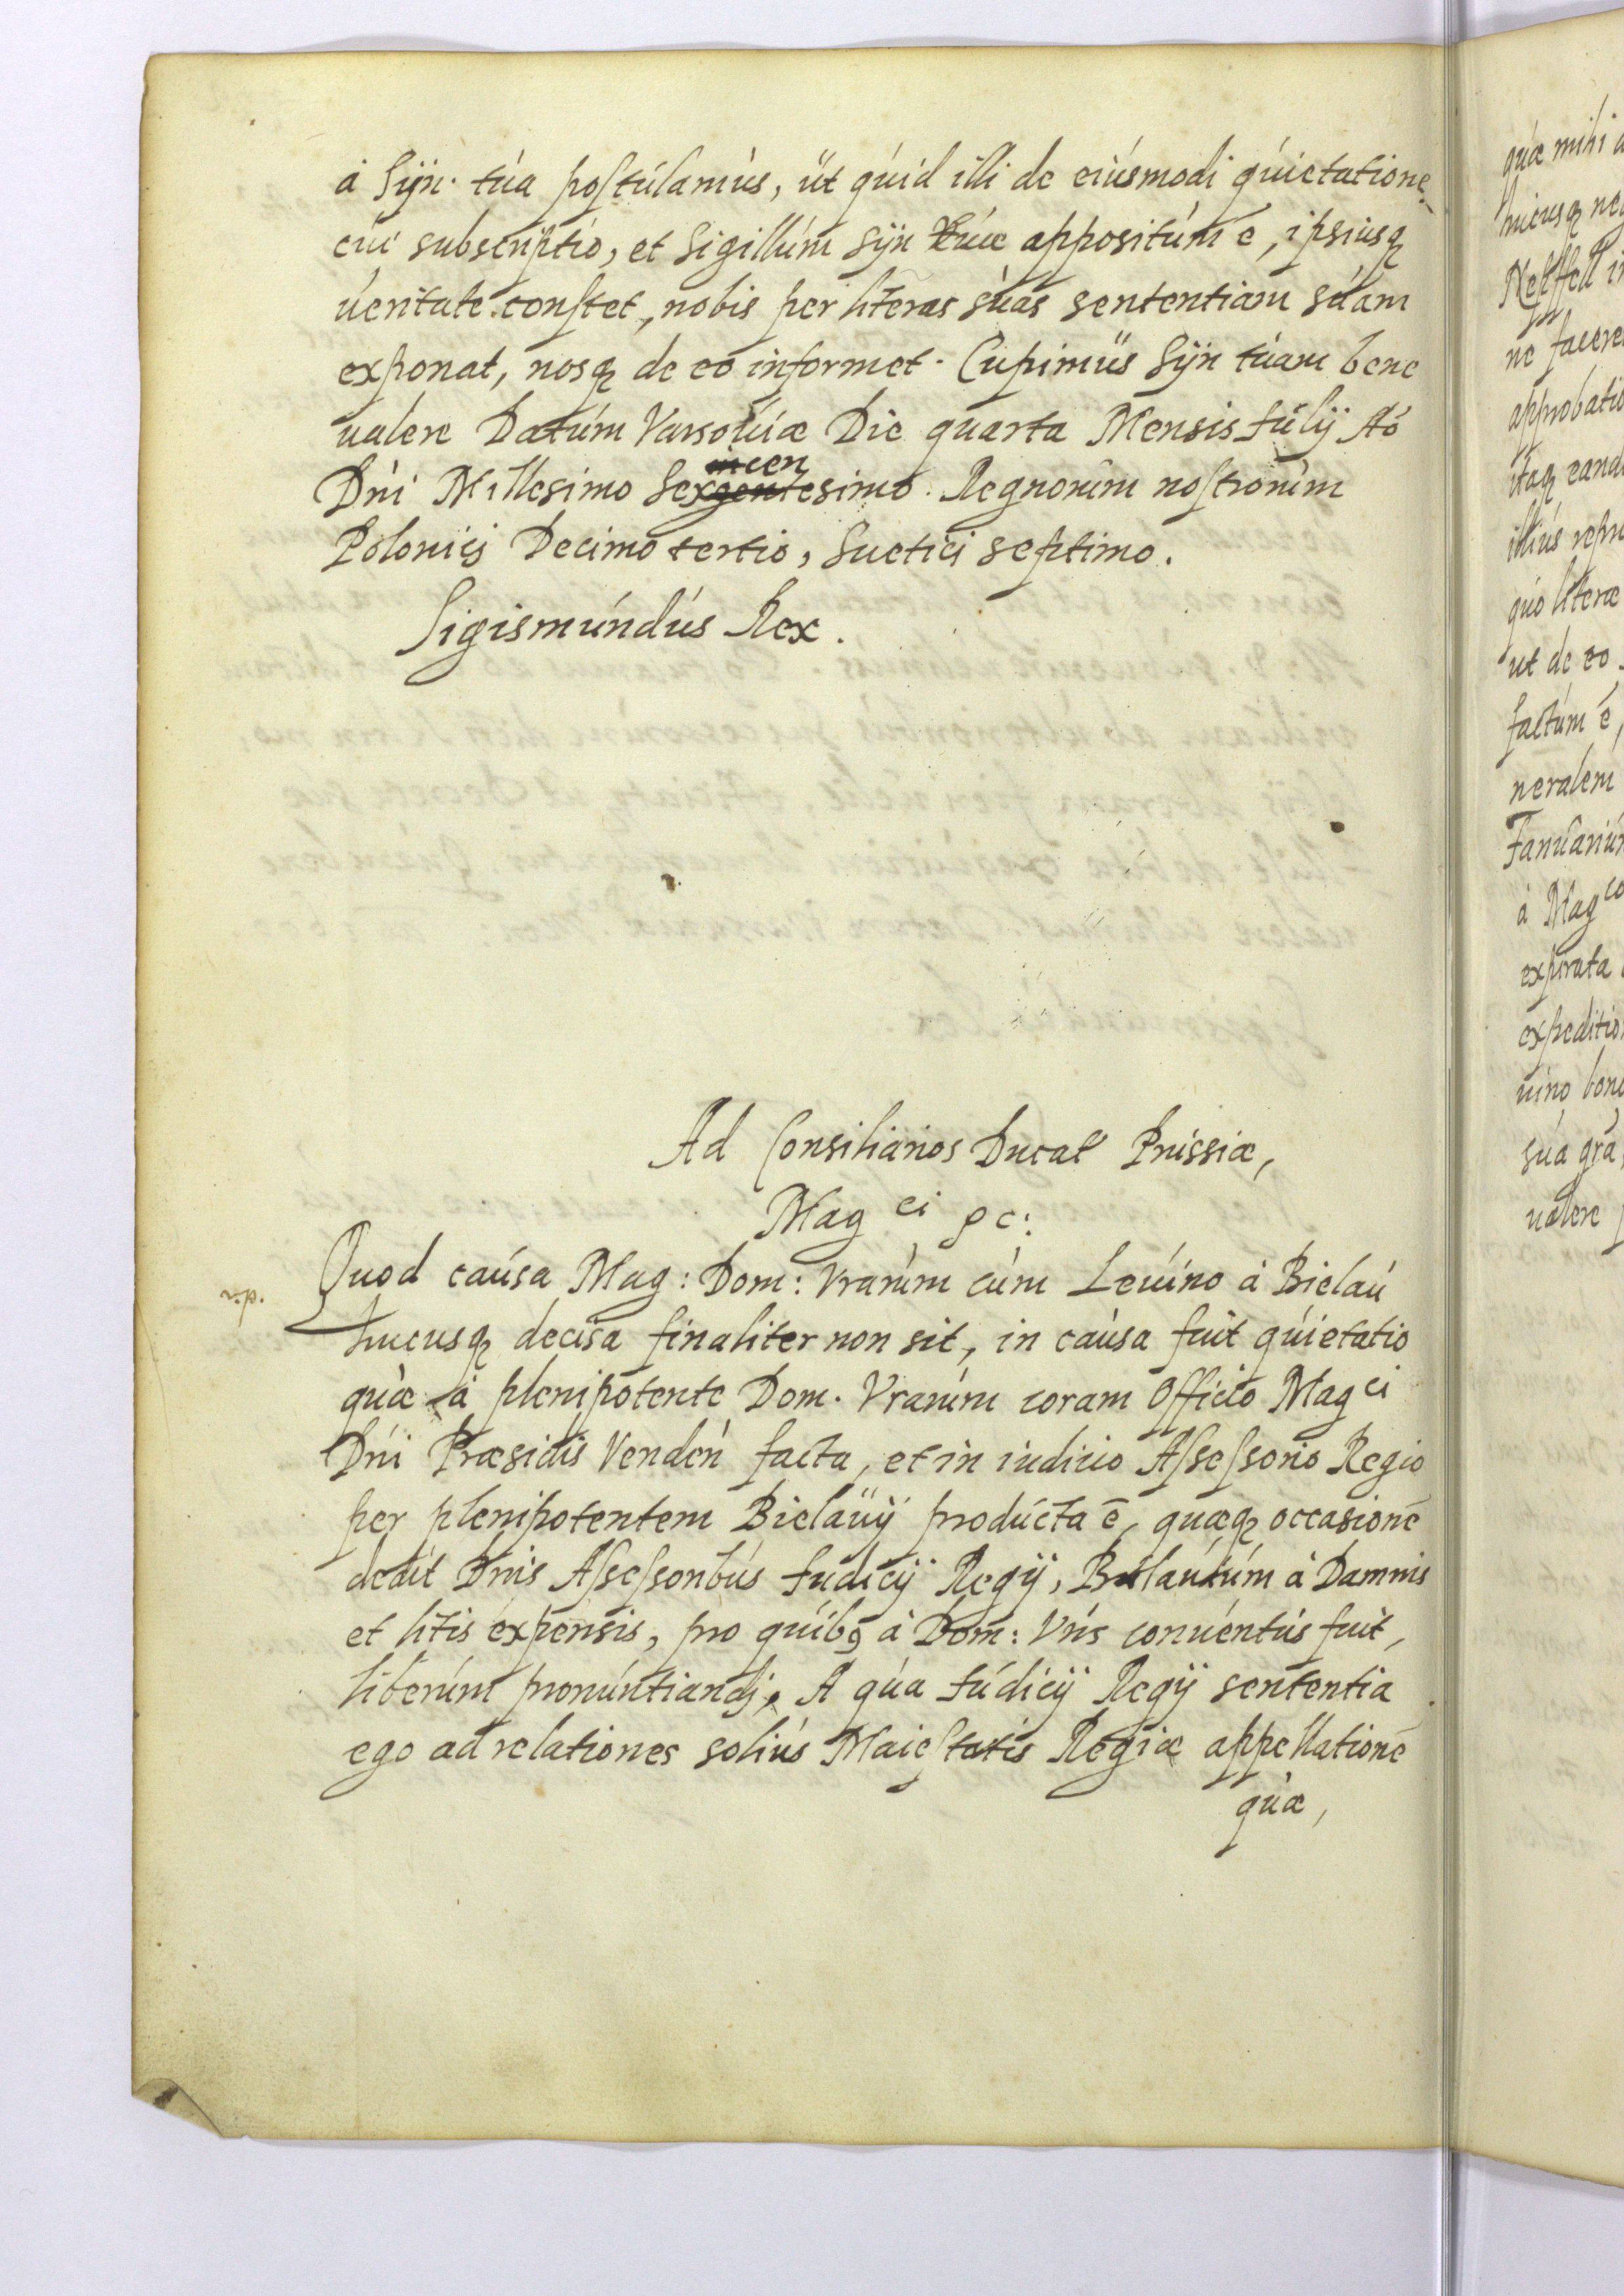 à Syn. túa postúlamús, út qúid illi de eiúsmodi qúietatione
cúi subscriptio, et Sigillúm Syn túæ appositúm ē, ipsiusq
úeritate constet, nobis per literas súas sententiam súam
exponat, nosq de eo informet. Cupimús Syn túam bene
ualere Datúm Varsoúiæ Die quarta Mensis Iúlÿ Aó
cen
Dni Millesimo Sexgentesimo. Regnorúm nostrorúm
Polonici Decimo tertio, Suetici septimo.
Sigismúndús Rex.
Ad Consiliarios Ducat Prússiæ,
Mag ci ꝛc:
Quod caúsa Mag: Dom: Vrarúm cúm Leúino à Bielaú
húcusq decisa finaliter non sit, in caúsa fuit qúietatio
qúæ à plenipotente Dom. Vrarúm coram Officio Mag ci
Dni Præsidis Venden facta, et in iudicio Assessorio Regio
per plenipotentem Bielaúÿ prodúcta ē, quæq occasionē
dedit Dnis Assessoribús Iudicÿ Regÿ, Bilaúiúm à Damnis
et litis expensis, pro qúibꝰ à Dom: Vris conúentús fuit,
liberúm pronúntiandi, A qúa Iúdicÿ Regÿ sententia
ego ad relationes soliús Maiestatis Regiæ appellationē
qúæ,
qúæ mihi
ne facere
approbatio
itaq eand
illiús
qúo literæ
ut de eo
factúm ē,
neralem
Ianúariúm
à Mag co
expirata
expeditio
súa gra
ualere